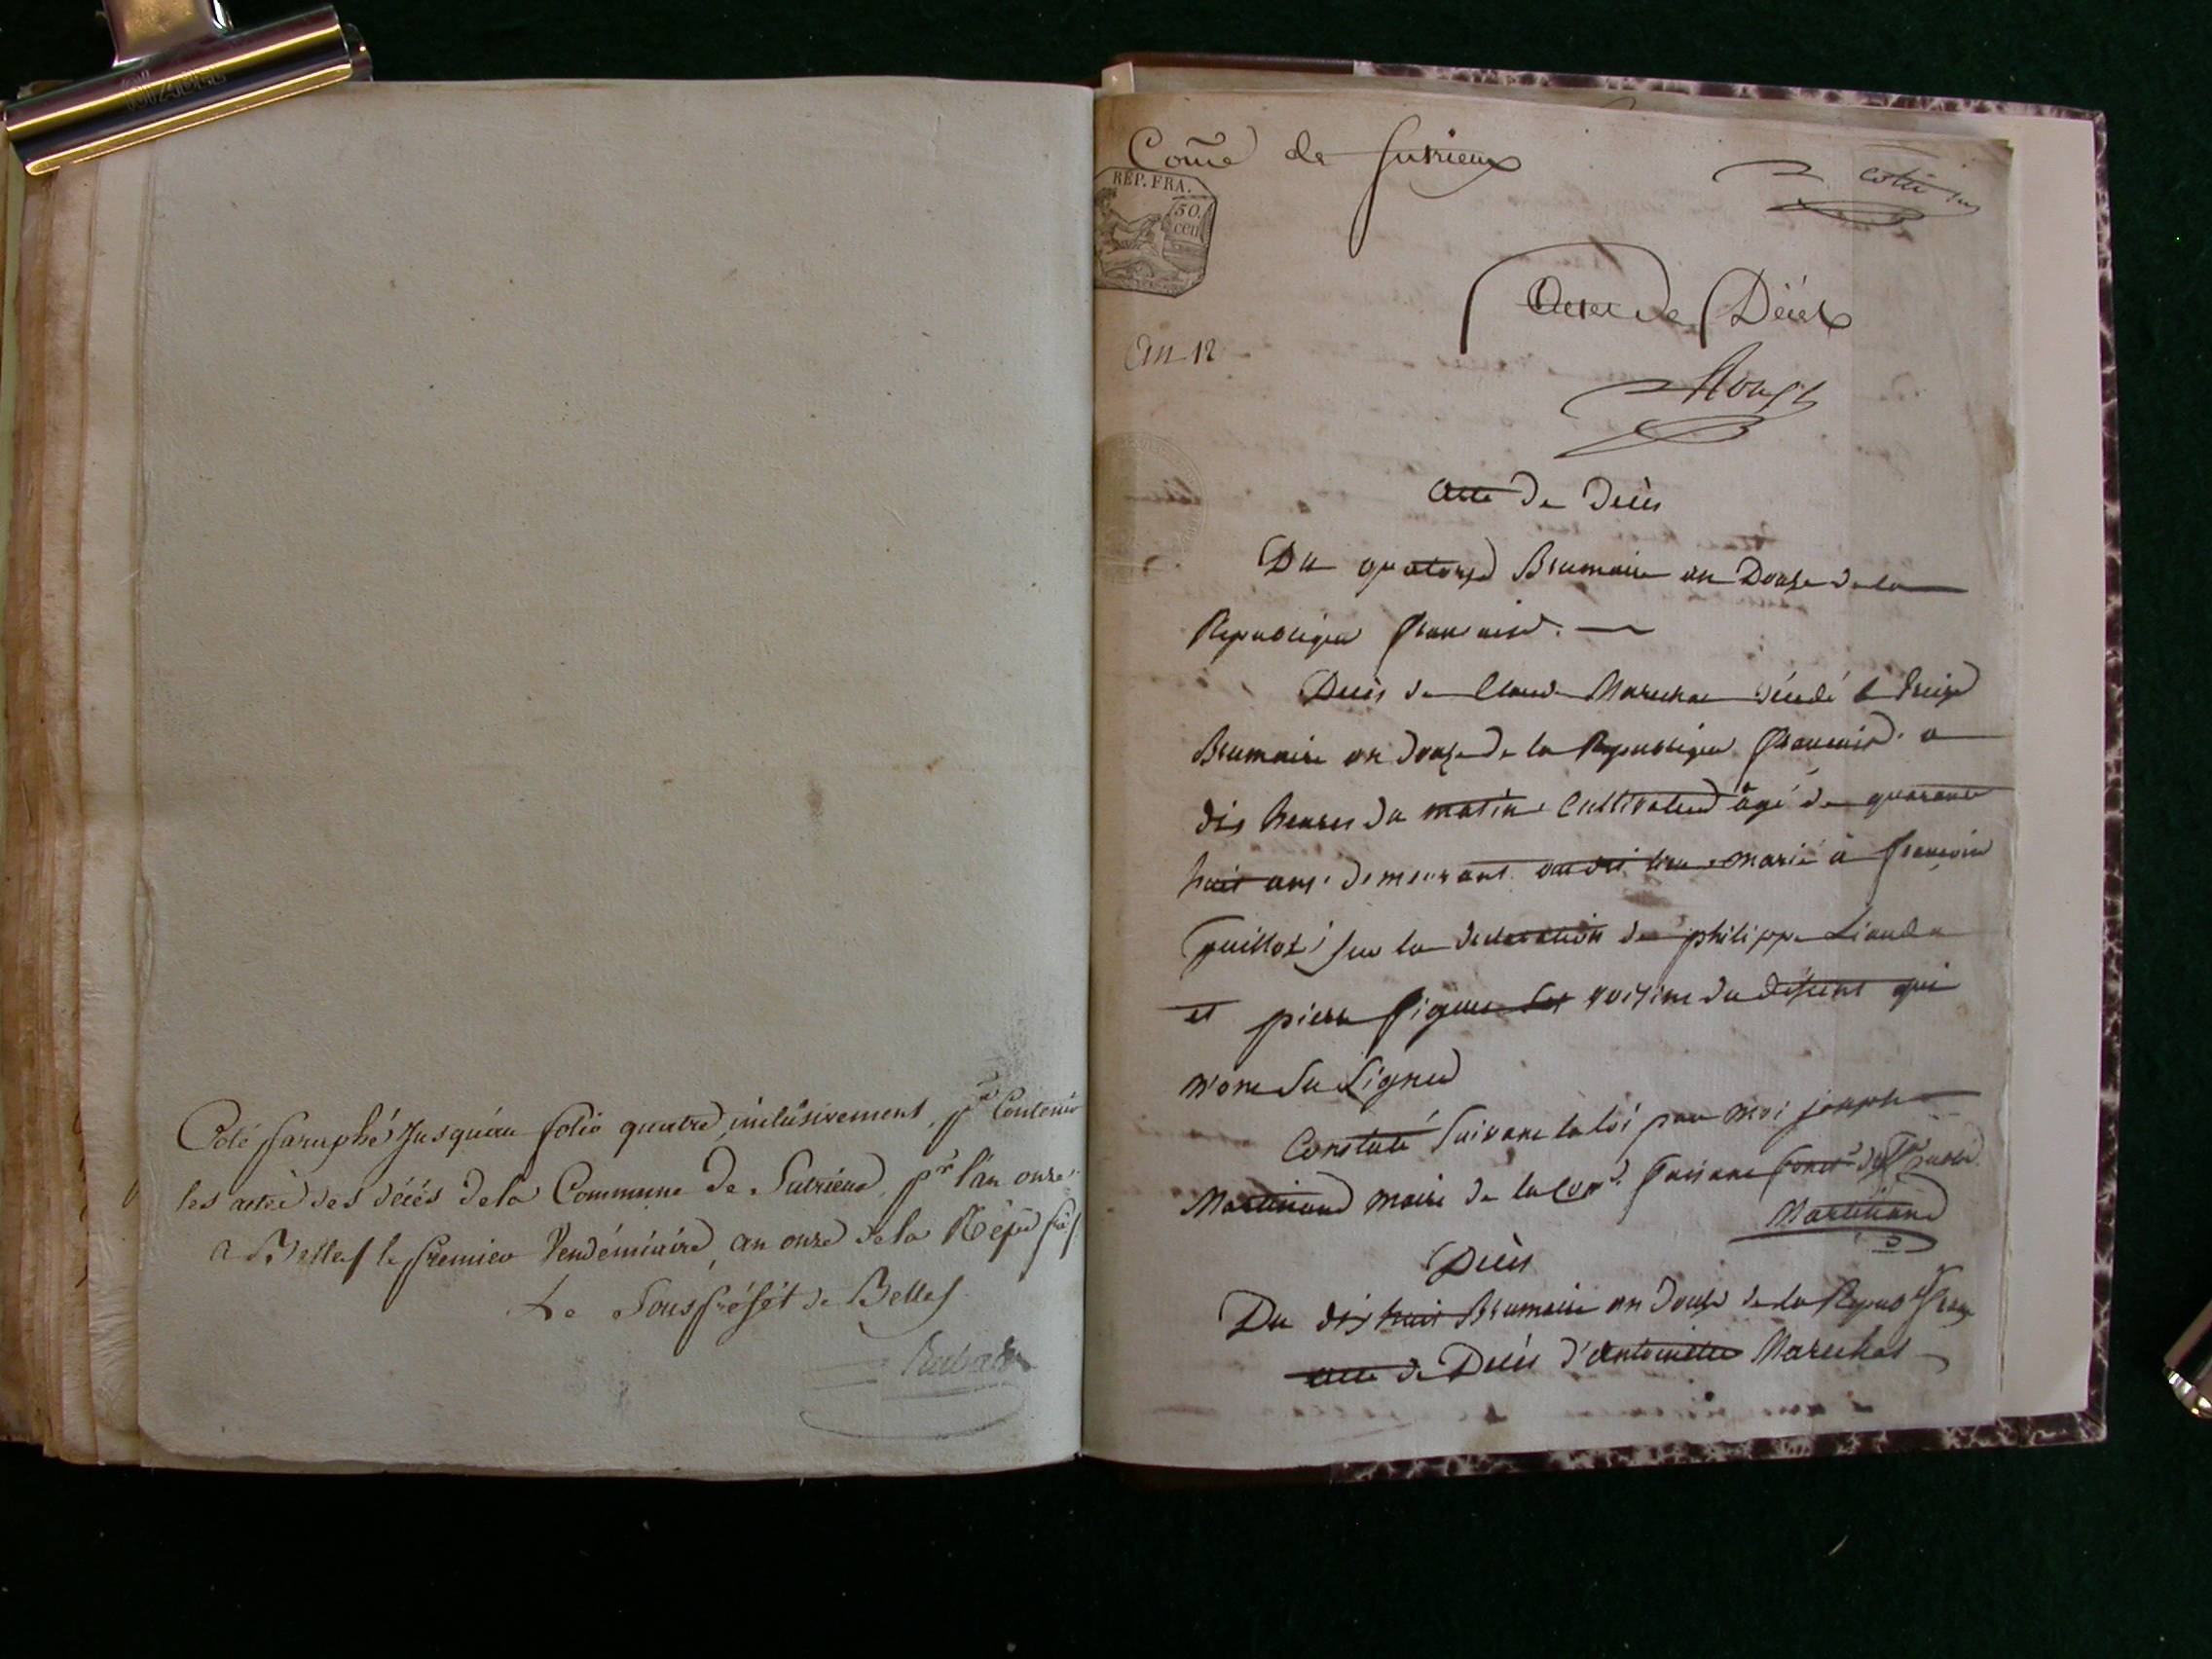 Coté paraphé Jusqu'au folio quatre inclusivement, pr Contenir
les actes des décés de la Commune de Sutrieux pr l'an onze
a Belley le premier Vendémiaire, an onze de la Répu fse
Le Sous préfét de Belley
Comē de Sutrieux
REP. FRA.
50
cen
An 12
Actes de Décés
acte de Decès
Du quatorze Brumaire an Douze de la
Republique francaise.
Decès de Claude Marechal décedé le treize
Brumaire an douze de la Republique francaise a
dix heures du matin Cultivateur âgé de quarante
huit ans demeurant audit lieu marié à francoise
guillot sur la declaration de philippe
et pierre voisins du defunt qui
n'ont Su Signer
Constaté Suivant la loi par moi joseph
Martinand maire de la Come faisant fonct de public
Martinand
Decès
Du dix huit Brumaire an douze de la Repub franc
acte de Decès d'Antoinette Marechal